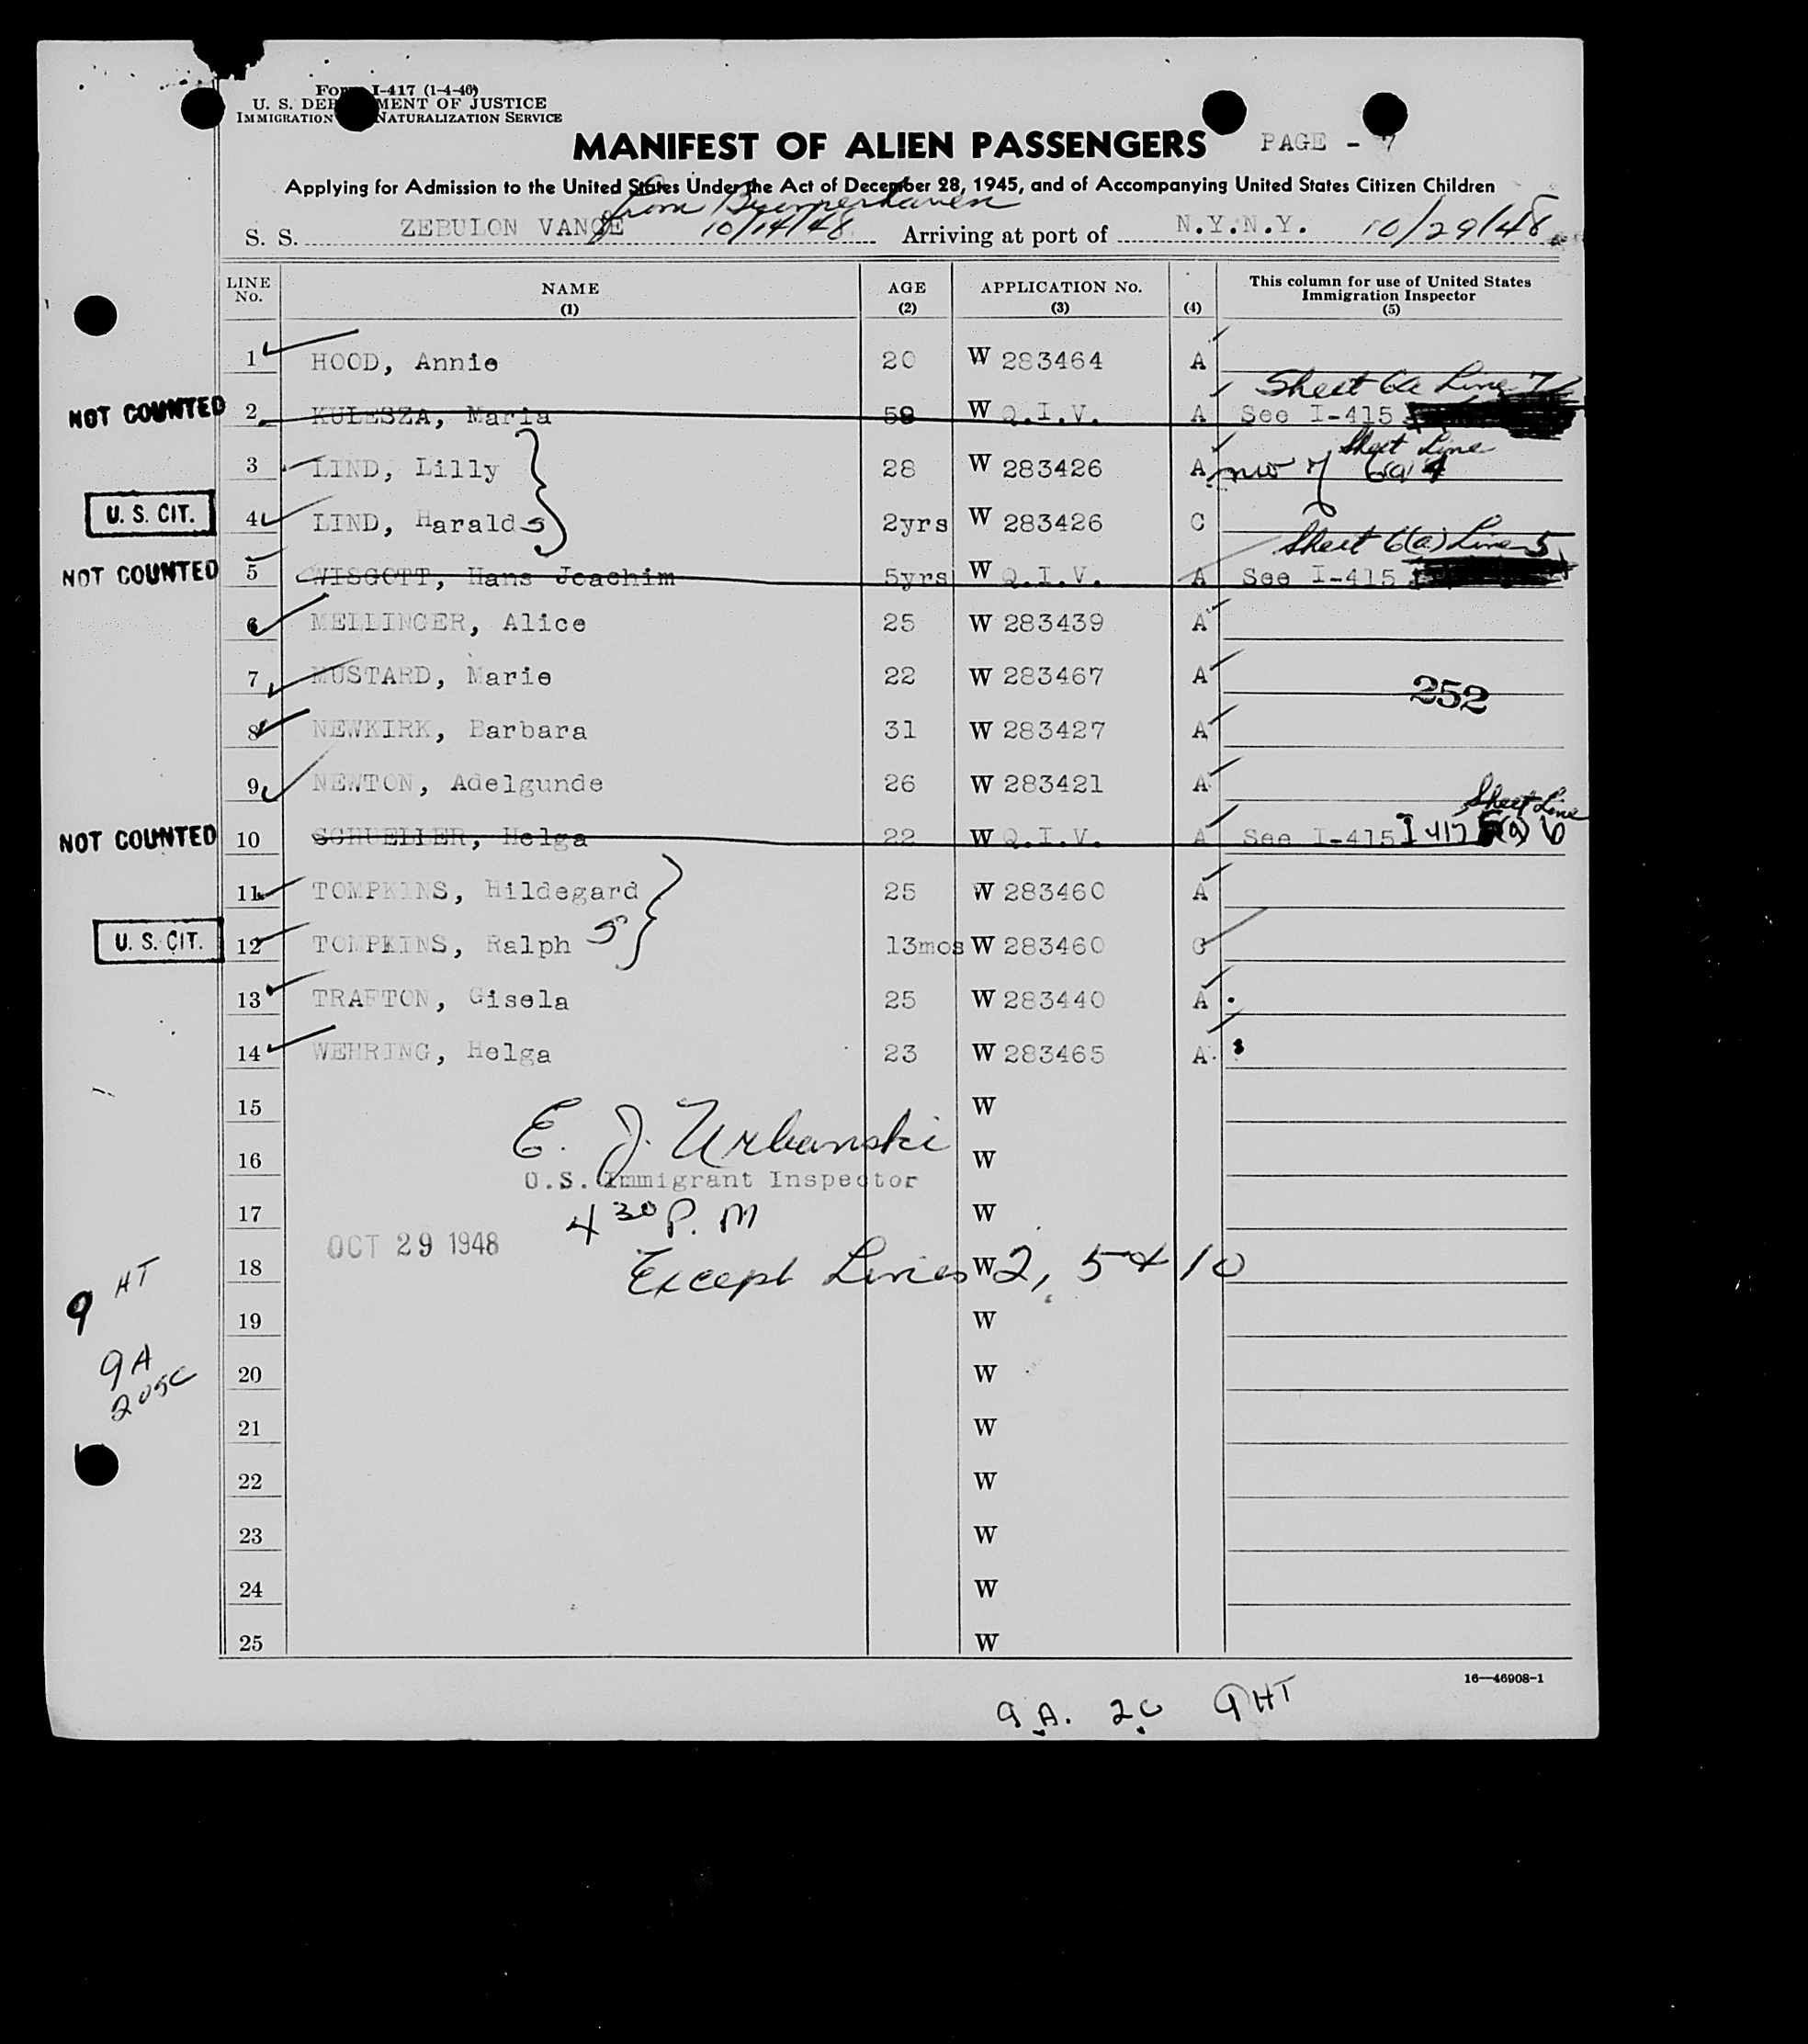 Form I-417 (1-4-46)
U. S. DEPARTMENT OF JUSTICE
IMMIGRATION NATURALIZATION SERVICE
MANIFEST OF ALIEN PASSENGERS PAGE - 7
Applying for Admission to the United States Under the Act of December 28, 1945, and of Accompanying United States Citizen Children
from Bremerhaven
S. S. ZEBULON VANCE 10/14/48 Arriving at port of N.Y.N.Y. 10/29/48
LINE No. NAME (1) AGE (2) APPLICATION No. (3) (4) This column for use of United States Immigration Inspector (5)
1 HOOD, Annie 20 W 283464 A
Sheet 6a Line 7
NOT COUNTED 2 KULESZA, Maria 59 W Q.I.V. A See I-415
Sheet Line
3 LIND, Lilly 28 W 283426 A 6a 4
U. S. CIT. 4 LIND, Harald S 2yrs W 283426 C
Sheet 6(a) Line 5
NOT COUNTED 5 WISGOTT, Hans Joachim 5yrs W Q.I.V. A See I-415
6 MELLINGER, Alice 25 W 283439 A
7 MUSTARD, Marie 22 W 283467 A
252
8 NEWKIRK, Barbara 31 W 283427 A
9 NEWTON, Adelgunde 26 W 283421 A
Sheet Line
NOT COUNTED 10 SCHUELLER, Helga 22 W Q.I.V. A See I-415 I 417 (a) 6
11 TOMPKINS, Hildegard 25 W 283460 A
U. S. CIT. 12 TOMPKINS, Ralph S 13mos W 283460 C
13 TRAFTON, Gisela 25 W 283440 A
14 WEHRING, Helga 23 W 283465 A
15 W
E. J. Urbanski
16 W
U.S. Immigrant Inspector
17 4 30 P. M W
OCT 29 1948
18 Except Lines W 2, 5 & 10
19 W
9 HT
20 W
9A
2 USC
21 W
22 W
23 W
24 W
25 W
16—46908-1
9 A. 2C 9HT